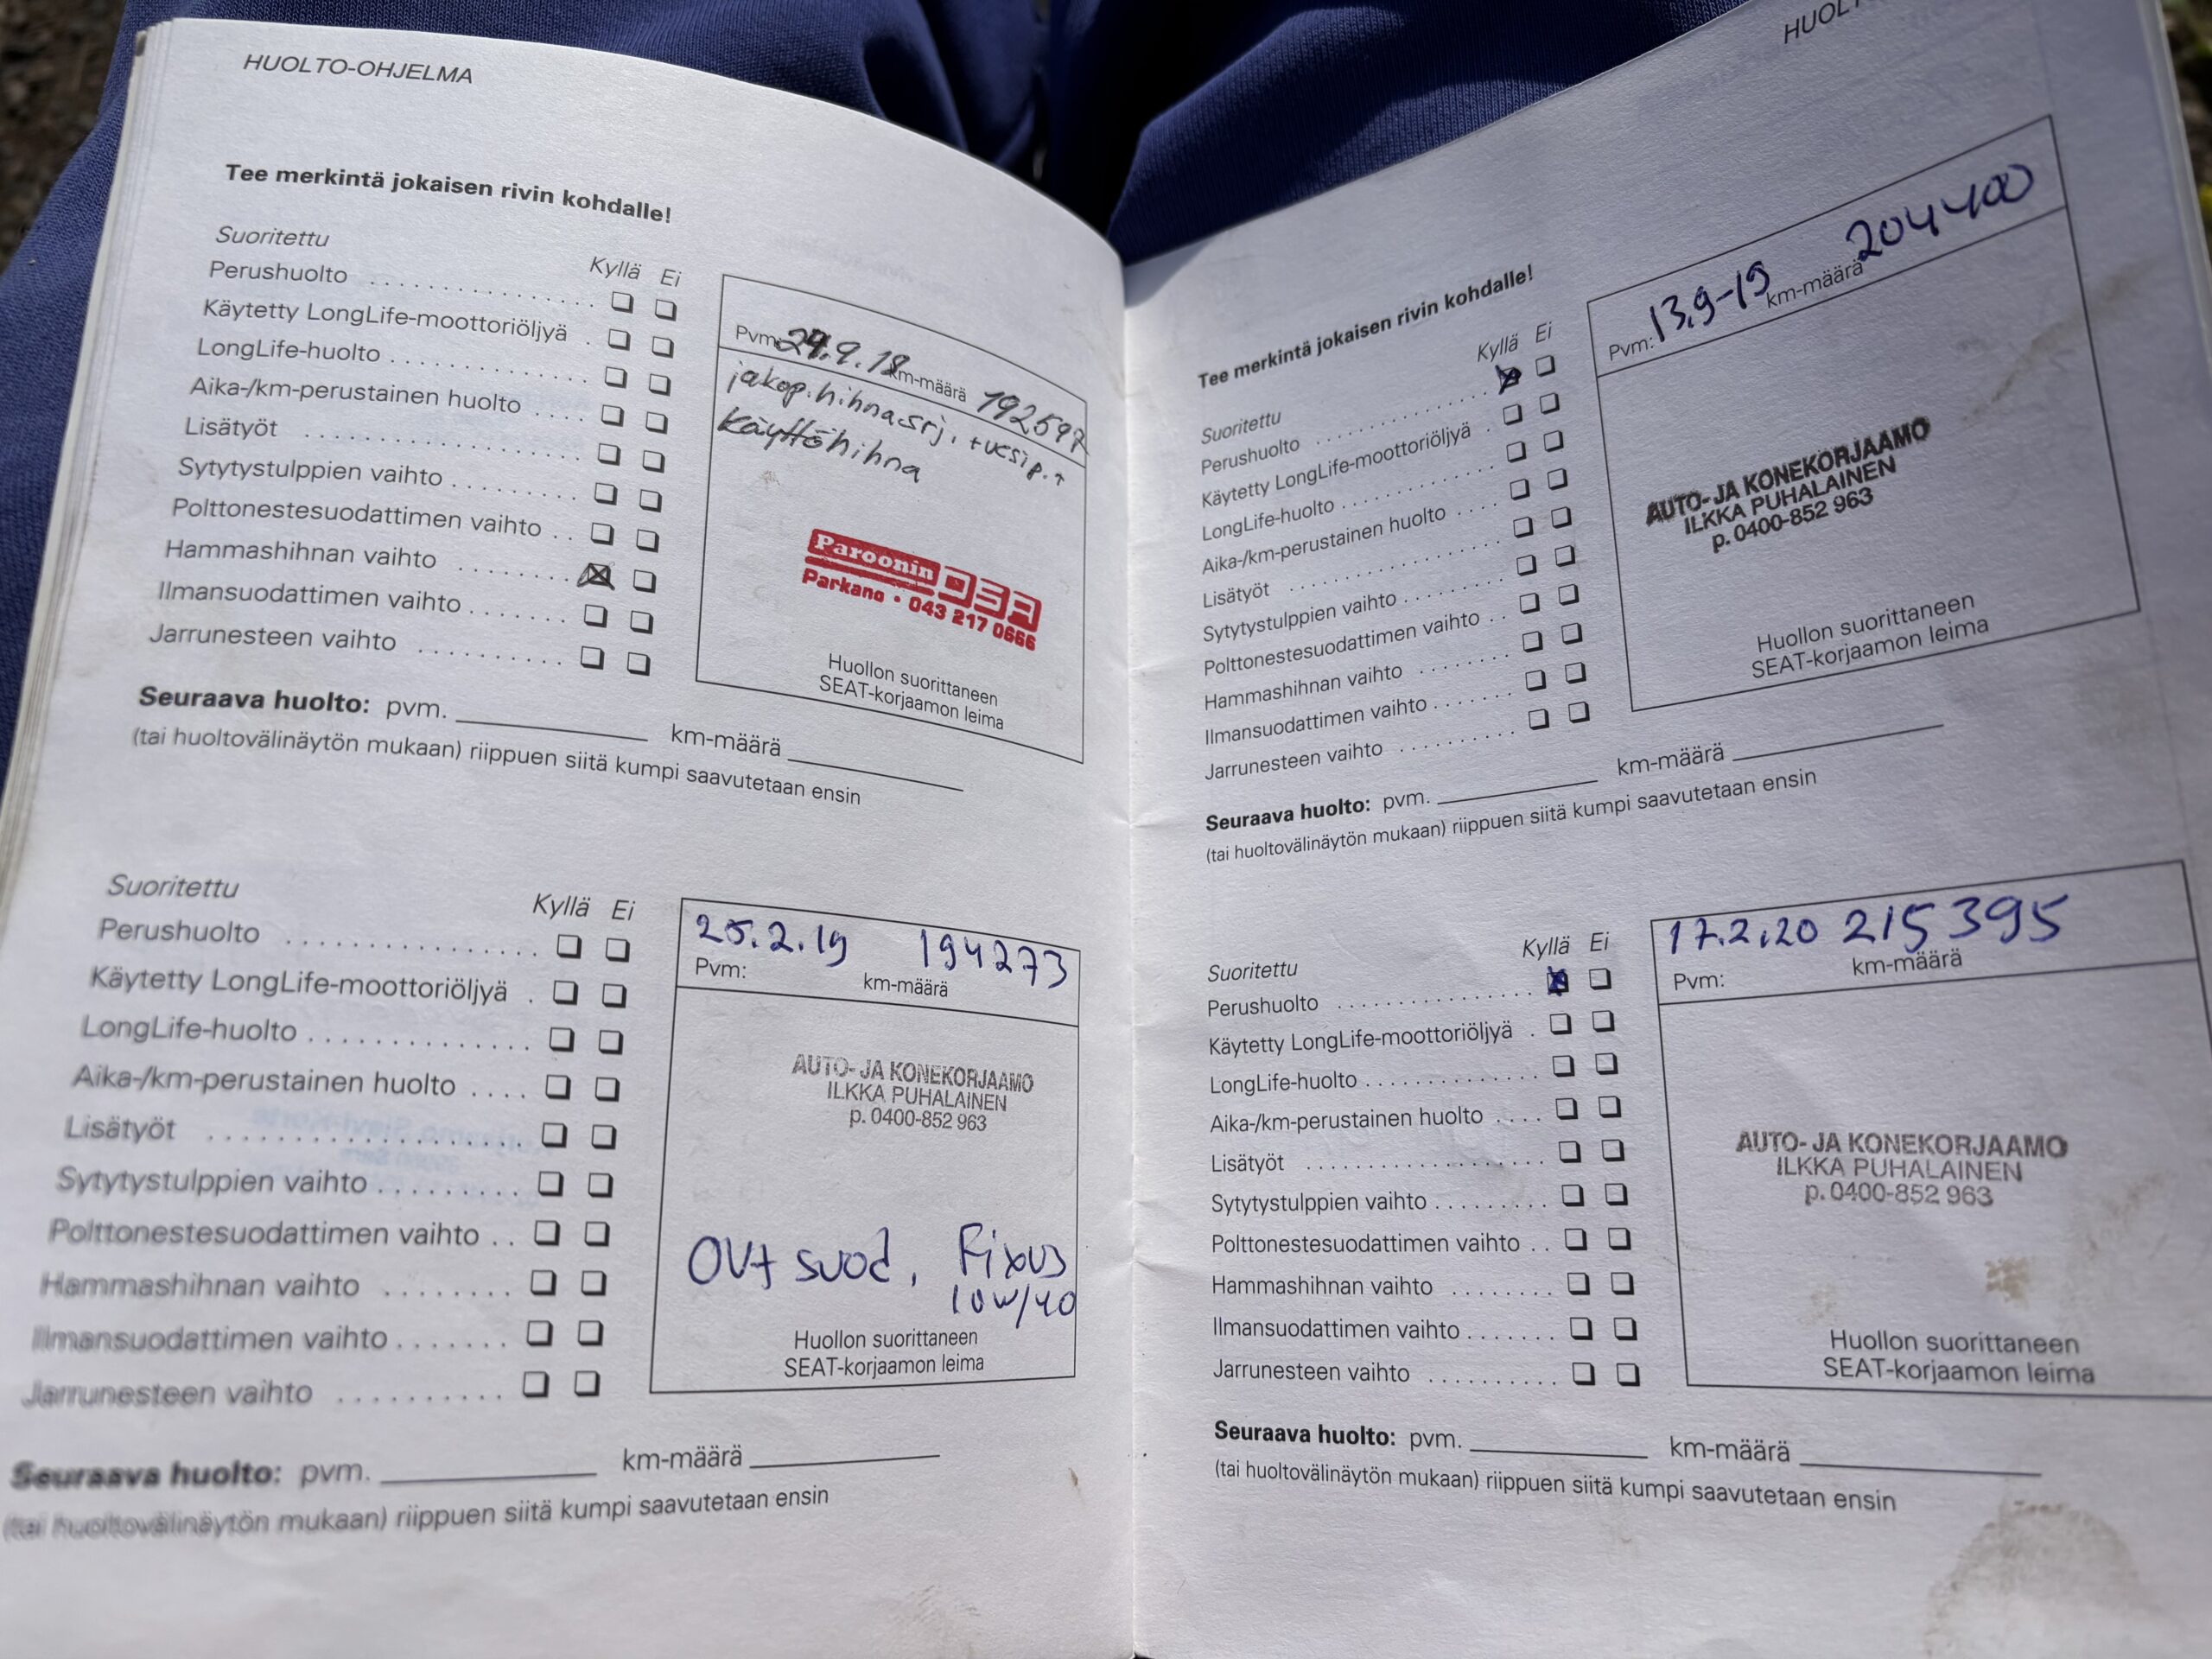 HUOLTO-OHJELMA
Tee merkintä jokaisen rivin kohdalle!
Suoritettu
Kyllä Ei
Perushuolto
Käytetty LongLife-moottoriöljyä
LongLife-huolto
Aika-/km-perustainen huolto
Lisätyöt
Sytytystulppien vaihto
Polttonestesuodattimen vaihto
Hammashihnan vaihto
Ilmansuodattimen vaihto
Jarrunesteen vaihto
Pvm: .9.18 km-määrä 192597
jakop.hihna.srj. +vesip.
Käyttöhihna
Paroonin OSA
Parkano • 043 217 0666
Huollon suorittaneen
SEAT-korjaamon leima
Seuraava huolto: pvm. km-määrä
(tai huoltovälinäytön mukaan) riippuen siitä kumpi saavutetaan ensin
Suoritettu
Kyllä Ei
Perushuolto
Käytetty LongLife-moottoriöljyä
LongLife-huolto
Aika-/km-perustainen huolto
Lisätyöt
Sytytystulppien vaihto
Polttonestesuodattimen vaihto
Hammashihnan vaihto
Ilmansuodattimen vaihto
Jarrunesteen vaihto
25.2.19 194273
Pvm: km-määrä
AUTO- JA KONEKORJAAMO
ILKKA PUHALAINEN
p. 0400-852 963
Öljyt suod, Fixus
10w/40
Huollon suorittaneen
SEAT-korjaamon leima
Seuraava huolto: pvm. km-määrä
(tai huoltovälinäytön mukaan) riippuen siitä kumpi saavutetaan ensin
Tee merkintä jokaisen rivin kohdalle!
Suoritettu
Kyllä Ei
Perushuolto
Käytetty LongLife-moottoriöljyä
LongLife-huolto
Aika-/km-perustainen huolto
Lisätyöt
Sytytystulppien vaihto
Polttonestesuodattimen vaihto
Hammashihnan vaihto
Ilmansuodattimen vaihto
Jarrunesteen vaihto
Pvm: 13.9-19 km-määrä 204400
AUTO- JA KONEKORJAAMO
ILKKA PUHALAINEN
p. 0400-852 963
Huollon suorittaneen
SEAT-korjaamon leima
Seuraava huolto: pvm. km-määrä
(tai huoltovälinäytön mukaan) riippuen siitä kumpi saavutetaan ensin
Suoritettu
Kyllä Ei
Perushuolto
Käytetty LongLife-moottoriöljyä
LongLife-huolto
Aika-/km-perustainen huolto
Lisätyöt
Sytytystulppien vaihto
Polttonestesuodattimen vaihto
Hammashihnan vaihto
Ilmansuodattimen vaihto
Jarrunesteen vaihto
17.2.20 215395
Pvm: km-määrä
AUTO- JA KONEKORJAAMO
ILKKA PUHALAINEN
p. 0400-852 963
Huollon suorittaneen
SEAT-korjaamon leima
Seuraava huolto: pvm. km-määrä
(tai huoltovälinäytön mukaan) riippuen siitä kumpi saavutetaan ensin